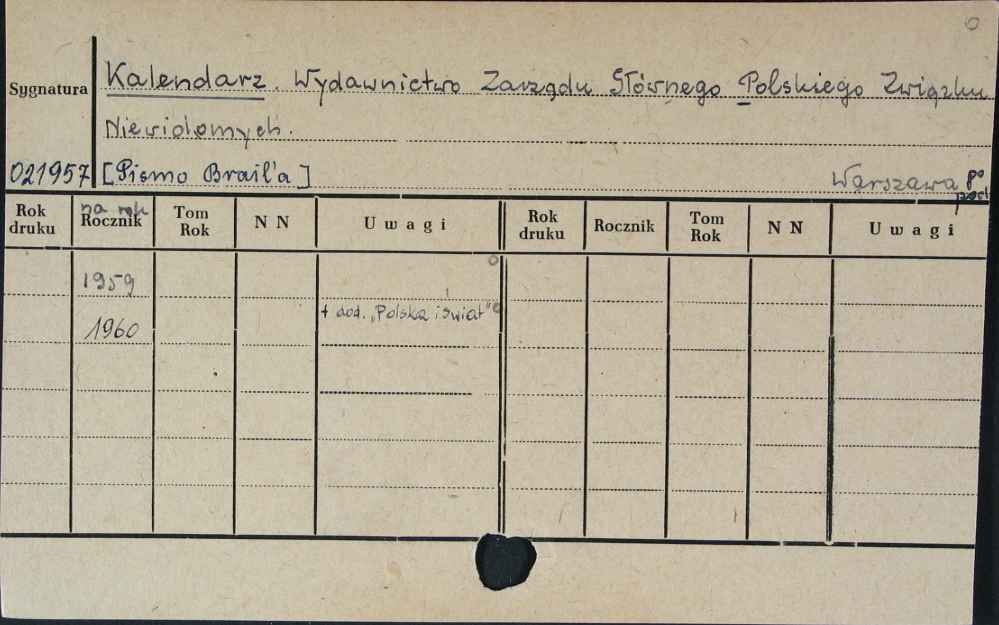 Sygnatura Kalendarz. Wydawnictwo Zarządu Głównego Polskiego Związku
Niewidomych.
021957 [Pismo Brail'a] Warszawa
Rok druku na rok Rocznik Tom Rok N N Uwagi Rok druku Rocznik Tom Rok N N Uwagi
1959
1960 + dod. „Polska i świat"